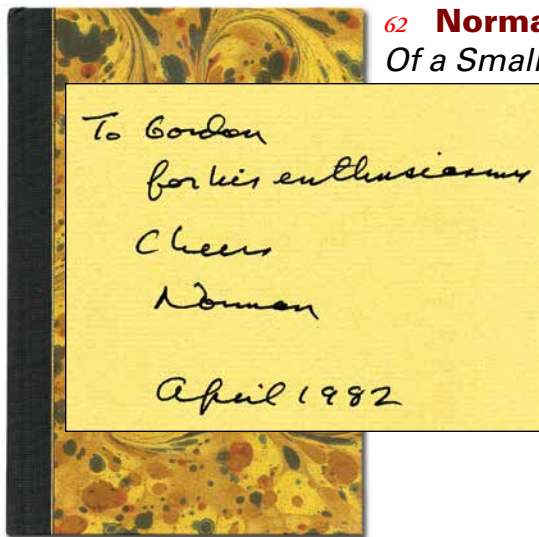 62 Norma
Of a Small
To Gordon
for his enthusiasms
Cheers
Norman
April 1982